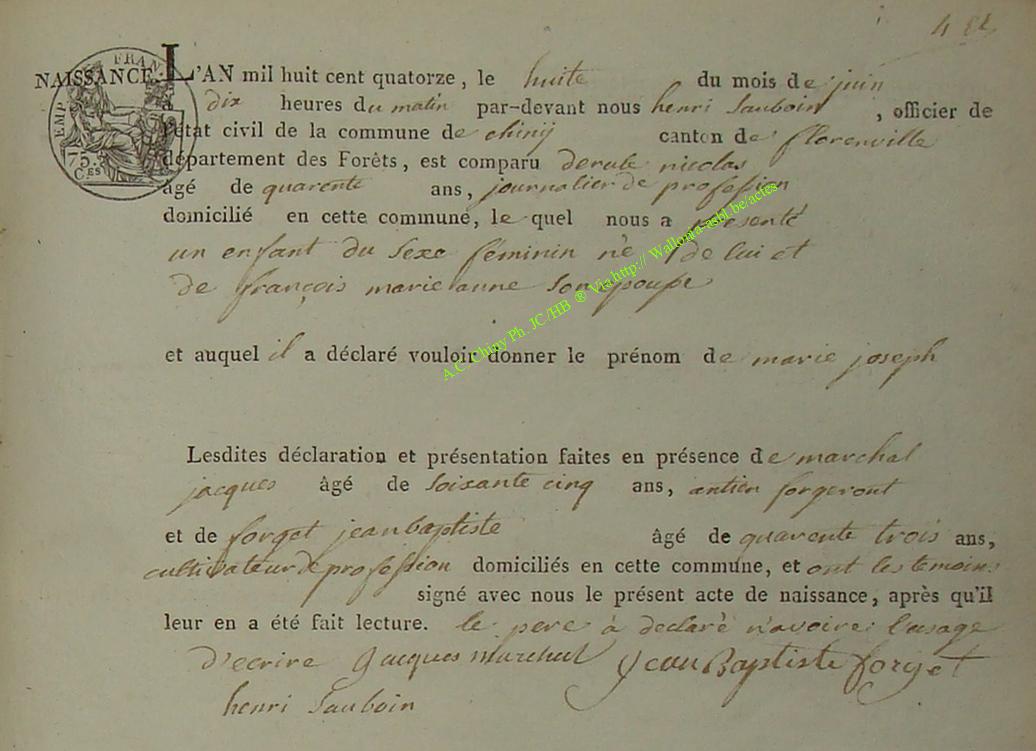 4 
FRAN
EMP
75.
C.ES
NAISSANCE. L'AN mil huit cent quatorze, le huite du mois de juin
à dix heures du matin par-devant nous henri Sauboin, officier de
l'état civil de la commune de chiny canton de florenville
département des Forêts, est comparu derule nicolas
âgé de quarente ans, journalier de profession
domicilié en cette commune, le quel nous a présenté
un enfant du sexe féminin né de lui et
de françois marie anne son epouse
et auquel il a déclaré vouloir donner le prénom de marie joseph
Lesdites déclaration et présentation faites en présence de marchal
jacques âgé de soixante cinq ans, antien forgeront
et de forget jean baptiste âgé de quarente trois ans,
cultivateur de profession domiciliés en cette commune, et ont les temoins
signé avec nous le présent acte de naissance, après qu'il
leur en a été fait lecture. le pere à declaré n'avoire l'usage
d'ecrire Jacques Marchal Jean Baptiste forget
henri Sauboin
A.C. Chiny Ph. JC/HB ® Via http:// Wallonia-asbl.be/actes